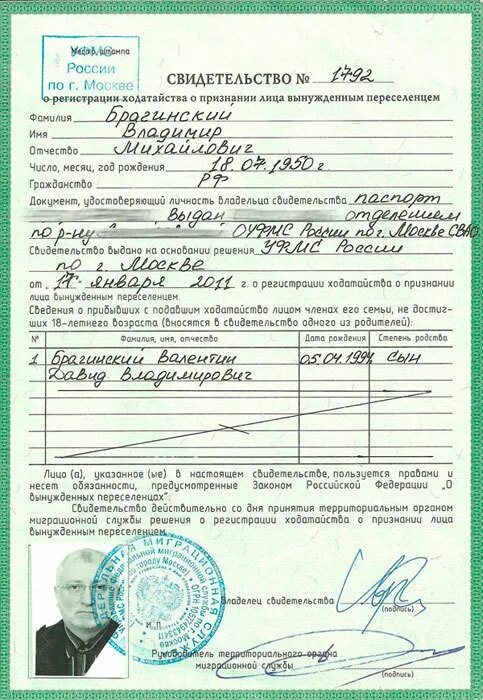 Место штампа
УФМС
России
по г. Москве
СВИДЕТЕЛЬСТВО № 1792
о регистрации ходатайства о признании лица вынужденным переселенцем
Фамилия Брагинский
Имя Владимир
Отчество Михайлович
Число, месяц, год рождения 18.07.1950г.
Гражданство РФ
Документ, удостоверяющий личность владельца свидетельства паспорт
выдан отделением
по р-ну ОУФМС России по г. Москве СВАО
Свидетельство выдано на основании решения УФМС России
по г. Москве
от "17" января 2011 г. о регистрации ходатайства о признании
лица вынужденным переселенцем.
Сведения о прибывших с подавшим ходатайство лицом членах его семьи, не достиг-
ших 18-летнего возраста (вносятся в свидетельство одного из родителей):
№ Фамилия, имя, отчество Дата рождения Степень родства
1 Брагинский Валентин 05.04.1994 сын
Давид Владимирович
Лицо (а), указанное (ые) в настоящем свидетельстве, пользуется правами и
несет обязанности, предусмотренные Законом Российской Федерации "О
вынужденных переселенцах".
Свидетельство действительно со дня принятия территориальным органом
миграционной службы решения о регистрации ходатайства о признании лица
вынужденным переселенцем.
М.П.
Владелец свидетельства
(подпись)
Руководитель территориального органа
миграционной службы
(подпись)